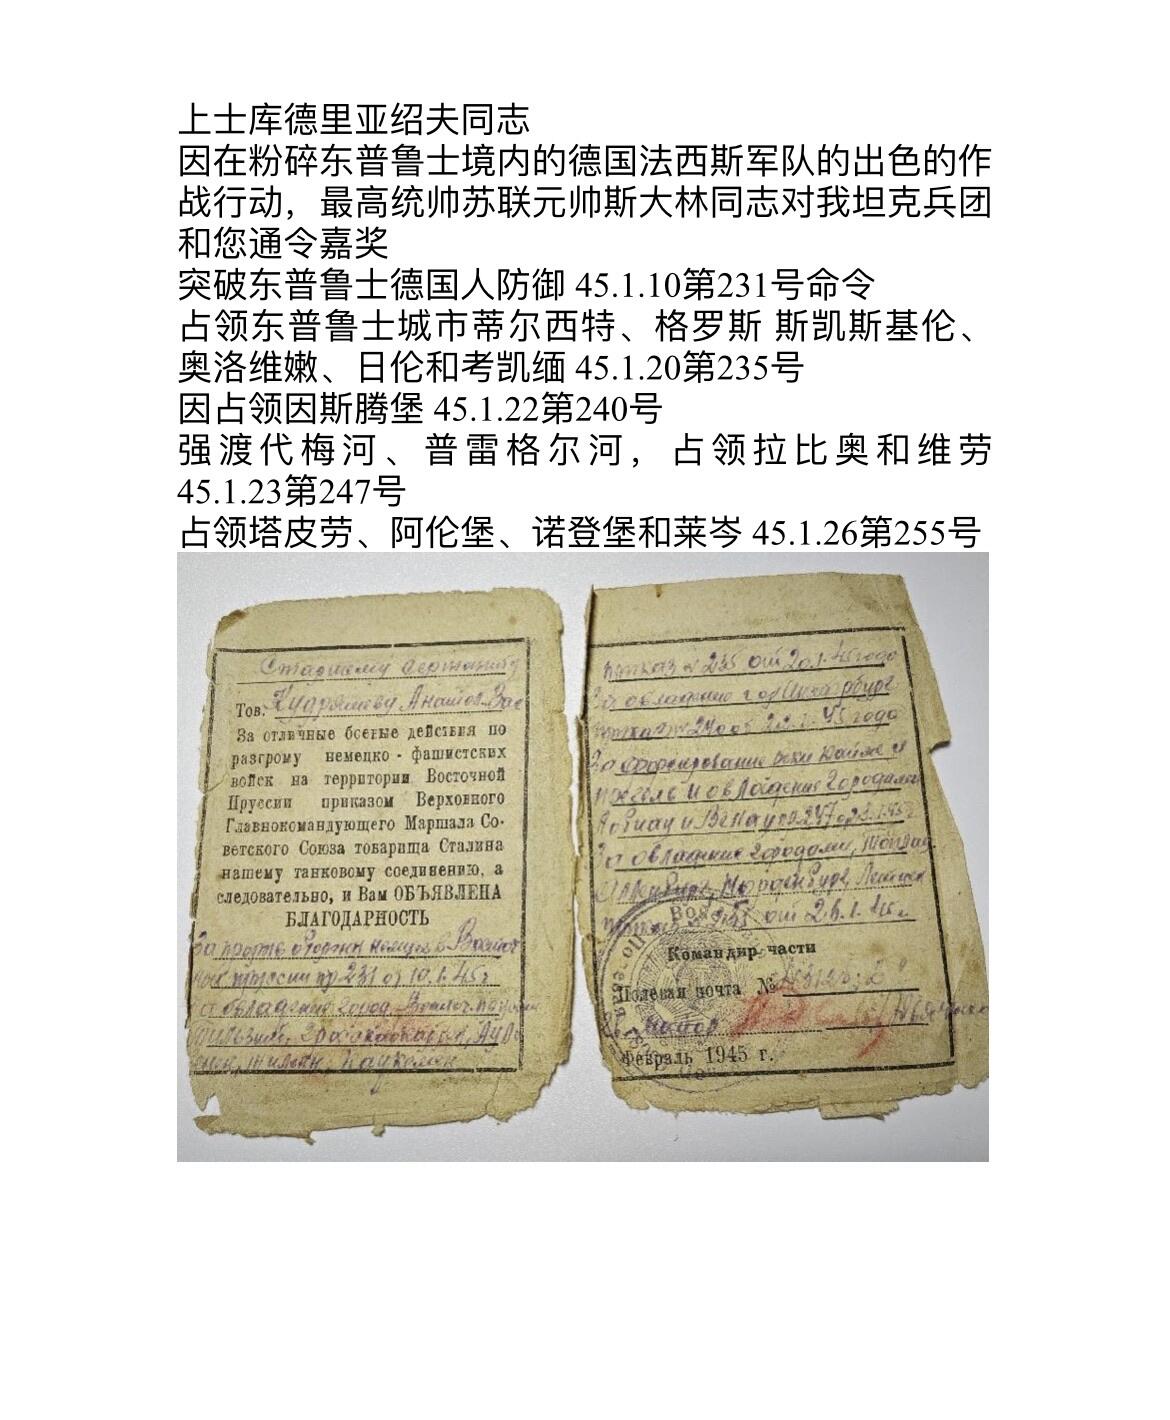 上士库德里亚绍夫同志
因在粉碎东普鲁士境内的德国法西斯军队的出色的作
战行动，最高统帅苏联元帅斯大林同志对我坦克兵团
和您通令嘉奖
突破东普鲁士德国人防御 45.1.10第231号命令
占领东普鲁士城市蒂尔西特、格罗斯 斯凯斯基伦、
奥洛维嫩、日伦和考凯缅 45.1.20第235号
因占领因斯腾堡 45.1.22第240号
强渡代梅河、普雷格尔河，占领拉比奥和维劳
45.1.23第247号
占领塔皮劳、阿伦堡、诺登堡和莱岑 45.1.26第255号
Старшему сержанту
Тов. Кудряшеву
За отличные боевые действия по
разгрому немецко - фашистских
войск на территории Восточной
Пруссии приказом Верховного
Главнокомандующего Маршала Со-
ветского Союза товарища Сталина
нашему танковому соединению, а
следовательно, и Вам ОБЪЯВЛЕНА
БЛАГОДАРНОСТЬ
немцев в
231 от 10.1.45г
город
приказ № 235 от 20.1.45 года
За овладение
240 от 22.1.45 года
За форсирование реки
и овладение городами
247
За овладение городами,
255 от 26.1.45г
Командир части
Полевая почта №
майор
Февраль 1945 г.